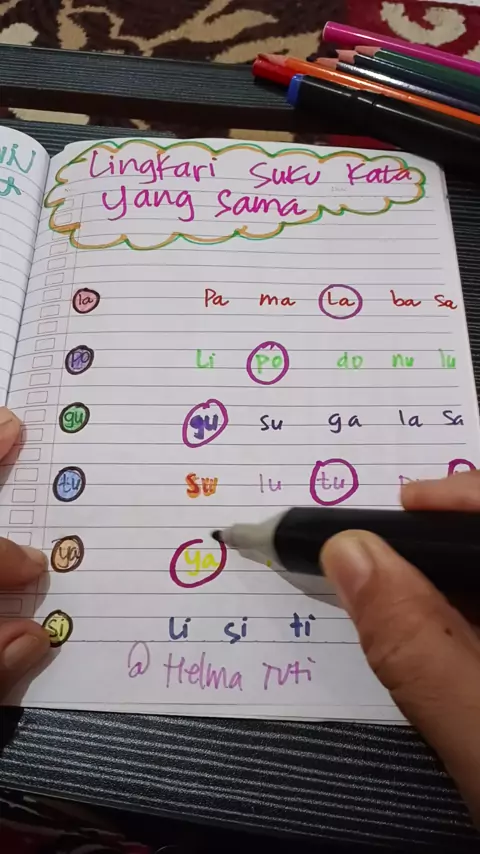 Lingkari Suku Kata
yang sama
la Pa ma La ba Sa
po Li po do nu lu
gu gu su ga la Sa
tu Su lu tu
ya ya
si Li si ti
@ Helma Tuti